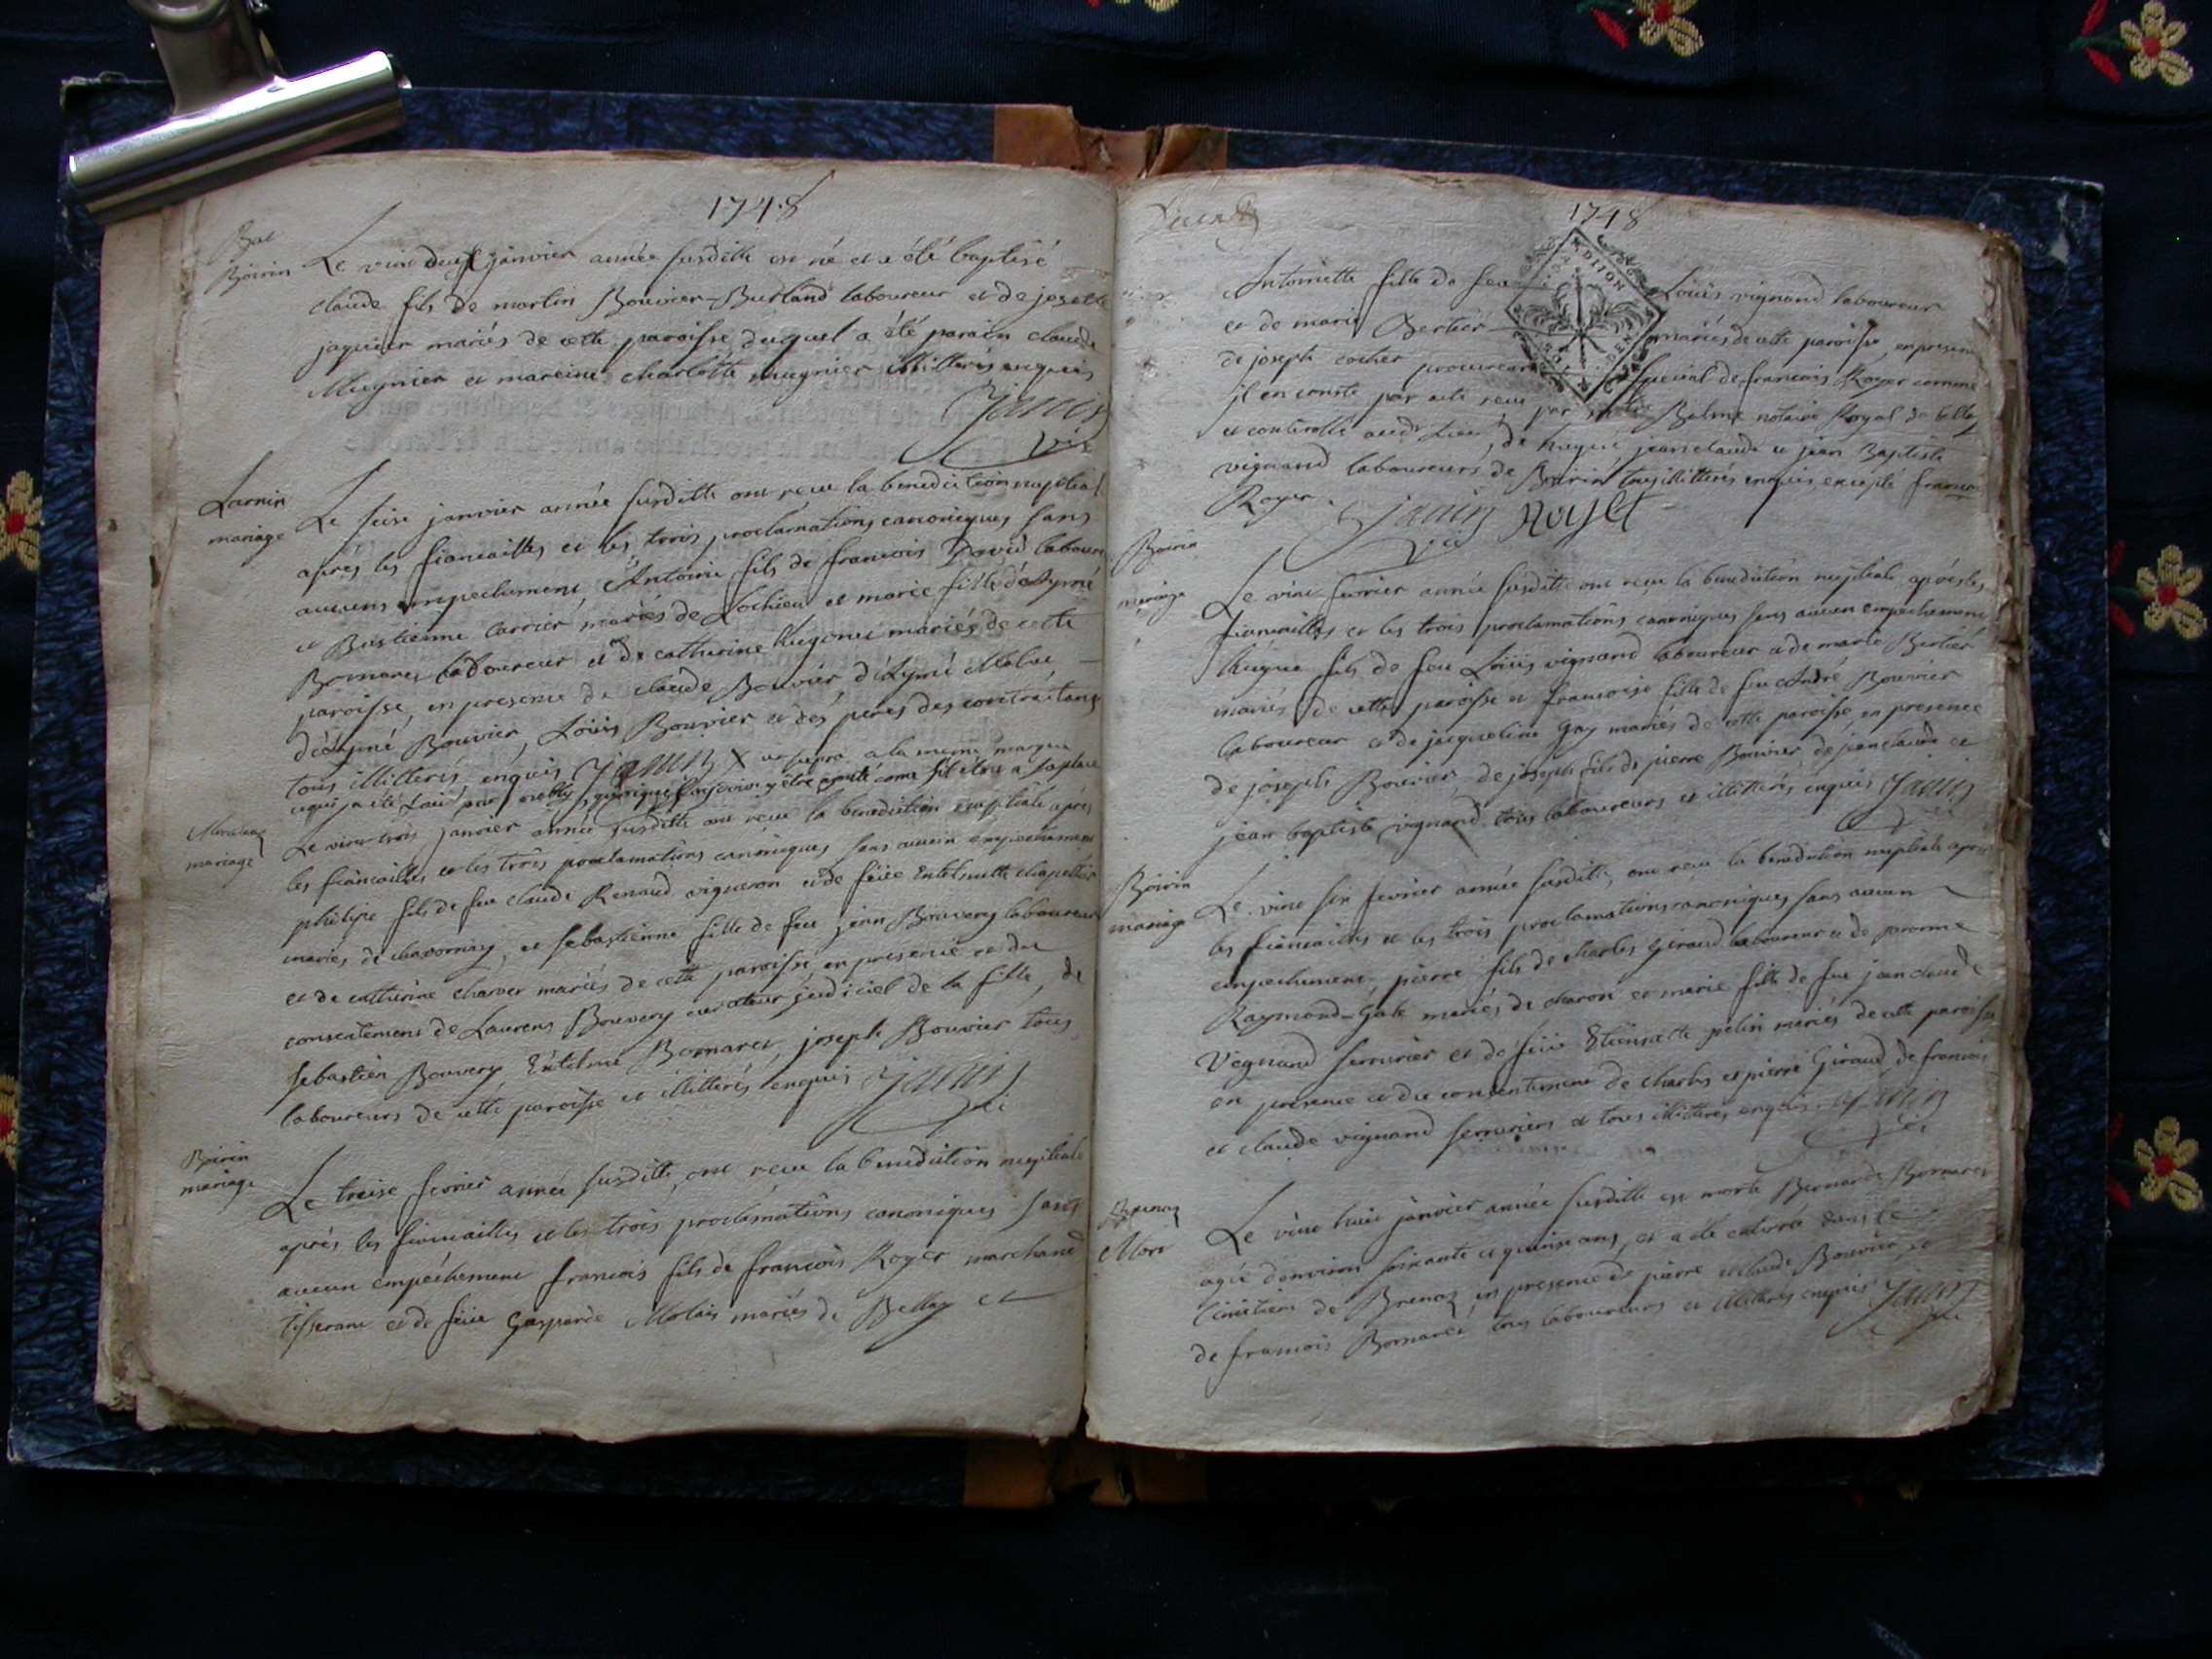 1748
Bat
Boirin
Le vint deux janvier année susditte est né et a été baptisé
claude fils de martin Bouvier-Burland laboureur et de josette
jaquier mariés de cette paroisse duquel a été parain claude
Mugnier et mareine charlotte mugnier illitterés enquis
Janin
vic
Larnin
mariage
Le seise janvier année susditte ont reçu la benediction nuptial
aprés les fiancailles et les trois proclamations canoniques sans
aucuns empechement, Antoine fils de francois David labour
et Bastienne Carrier mariés de Lochieu et marie fille d'Aymé
Bornarel laboureur et de catherine Hugonet mariés de cette
paroisse, en presence de claude Bouvier, d'Aymé
d'aymé Bouvier, Loüis Bouvier et des peres des contractans
tous illitterés enquis Janin X ut supra a la meme marque
mariage
Le vint-trois janvier année susditte ont reçu la benediction nuptiale aprés
les fiancailles et les trois proclamations canoniques sans aucun empechement
philipe fils de feu claude Renaud vigneron et de feüe Entelmette chapellier
mariés de chavornay, et sebastienne fille de feu jean Bouvery laboureur
et de catherine charver mariés de cette paroisse, en presence et du
consentement de Laurens Bouvery curateur judiciel de la fille, de
sebastien Bouvery Entelme Bornarel, joseph Bouvier tous
laboureurs de cette paroisse et illitterés enquis Janin
vic
Boirin
mariage
Le treise fevrier année susditte, ont reçu la benediction nuptiale
aprés les fiancailles et les trois proclamations canoniques sans
aucun empéchement francois fils de francois Royer marchand
tisserant et de feüe Gasparde Molais mariés de Belley et
1748
DIJON
Antoinette fille de feu Loüis vignand laboureur
et de marie Bertier mariés de cette paroisse, en presence
de joseph cocher procureur special de francois Royer comme
il en conste par acte reçu par Balme notaire Royal de belley
et controllé audt Lieu, de hugue, jean claude et jean Baptiste
vignand laboureurs de Boirin tous illitterés enquis excepté francois
Royer. Janin Royet
vic
Boirin
mariage
Le vint fevrier année susditte ont reçu la benediction nuptiale aprés les
fiancailles et les trois proclamations canoniques sans aucun empechement
Hugue fils de feu Loüis vignand laboureur et de marie Bertier
mariés de cette paroisse et francoise fille de feu André Bouvier
laboureur et de jacqueline Gay mariés de cette paroisse, en presence
de joseph Bouvier, de joseph fils de pierre Bouvier, de jean claude et
jean baptiste vignand tous laboureurs et illitterés enquis Janin
vic
Boirin
mariage
Le vint six fevrier année susditte, ont reçu la benediction nuptiale aprés
les fiancailles et les trois proclamations canoniques sans aucun
empechement, pierre fils de charles Giraud laboureur et de
Raymond-Gale mariés de charon et marie fille de feu jean claude
Vignand serrurier et de feüe Etiennette pelin mariés de cette paroisse
en presence et du consentement de charles et pierre Giraud, de francois
et claude vignand serruriers et tous illitterés enquis Janin
vic
Brenaz
Mort
Le vint huit janvier année susditte est morte Bernarde Bornarel
agée d'environ soixante et quinse ans, et a été enterrée dans le
cimetiere de Brenaz, en presence de pierre et claude Bouvier, et
de francois Bornarel tous laboureurs et illitterés enquis Janin
vic